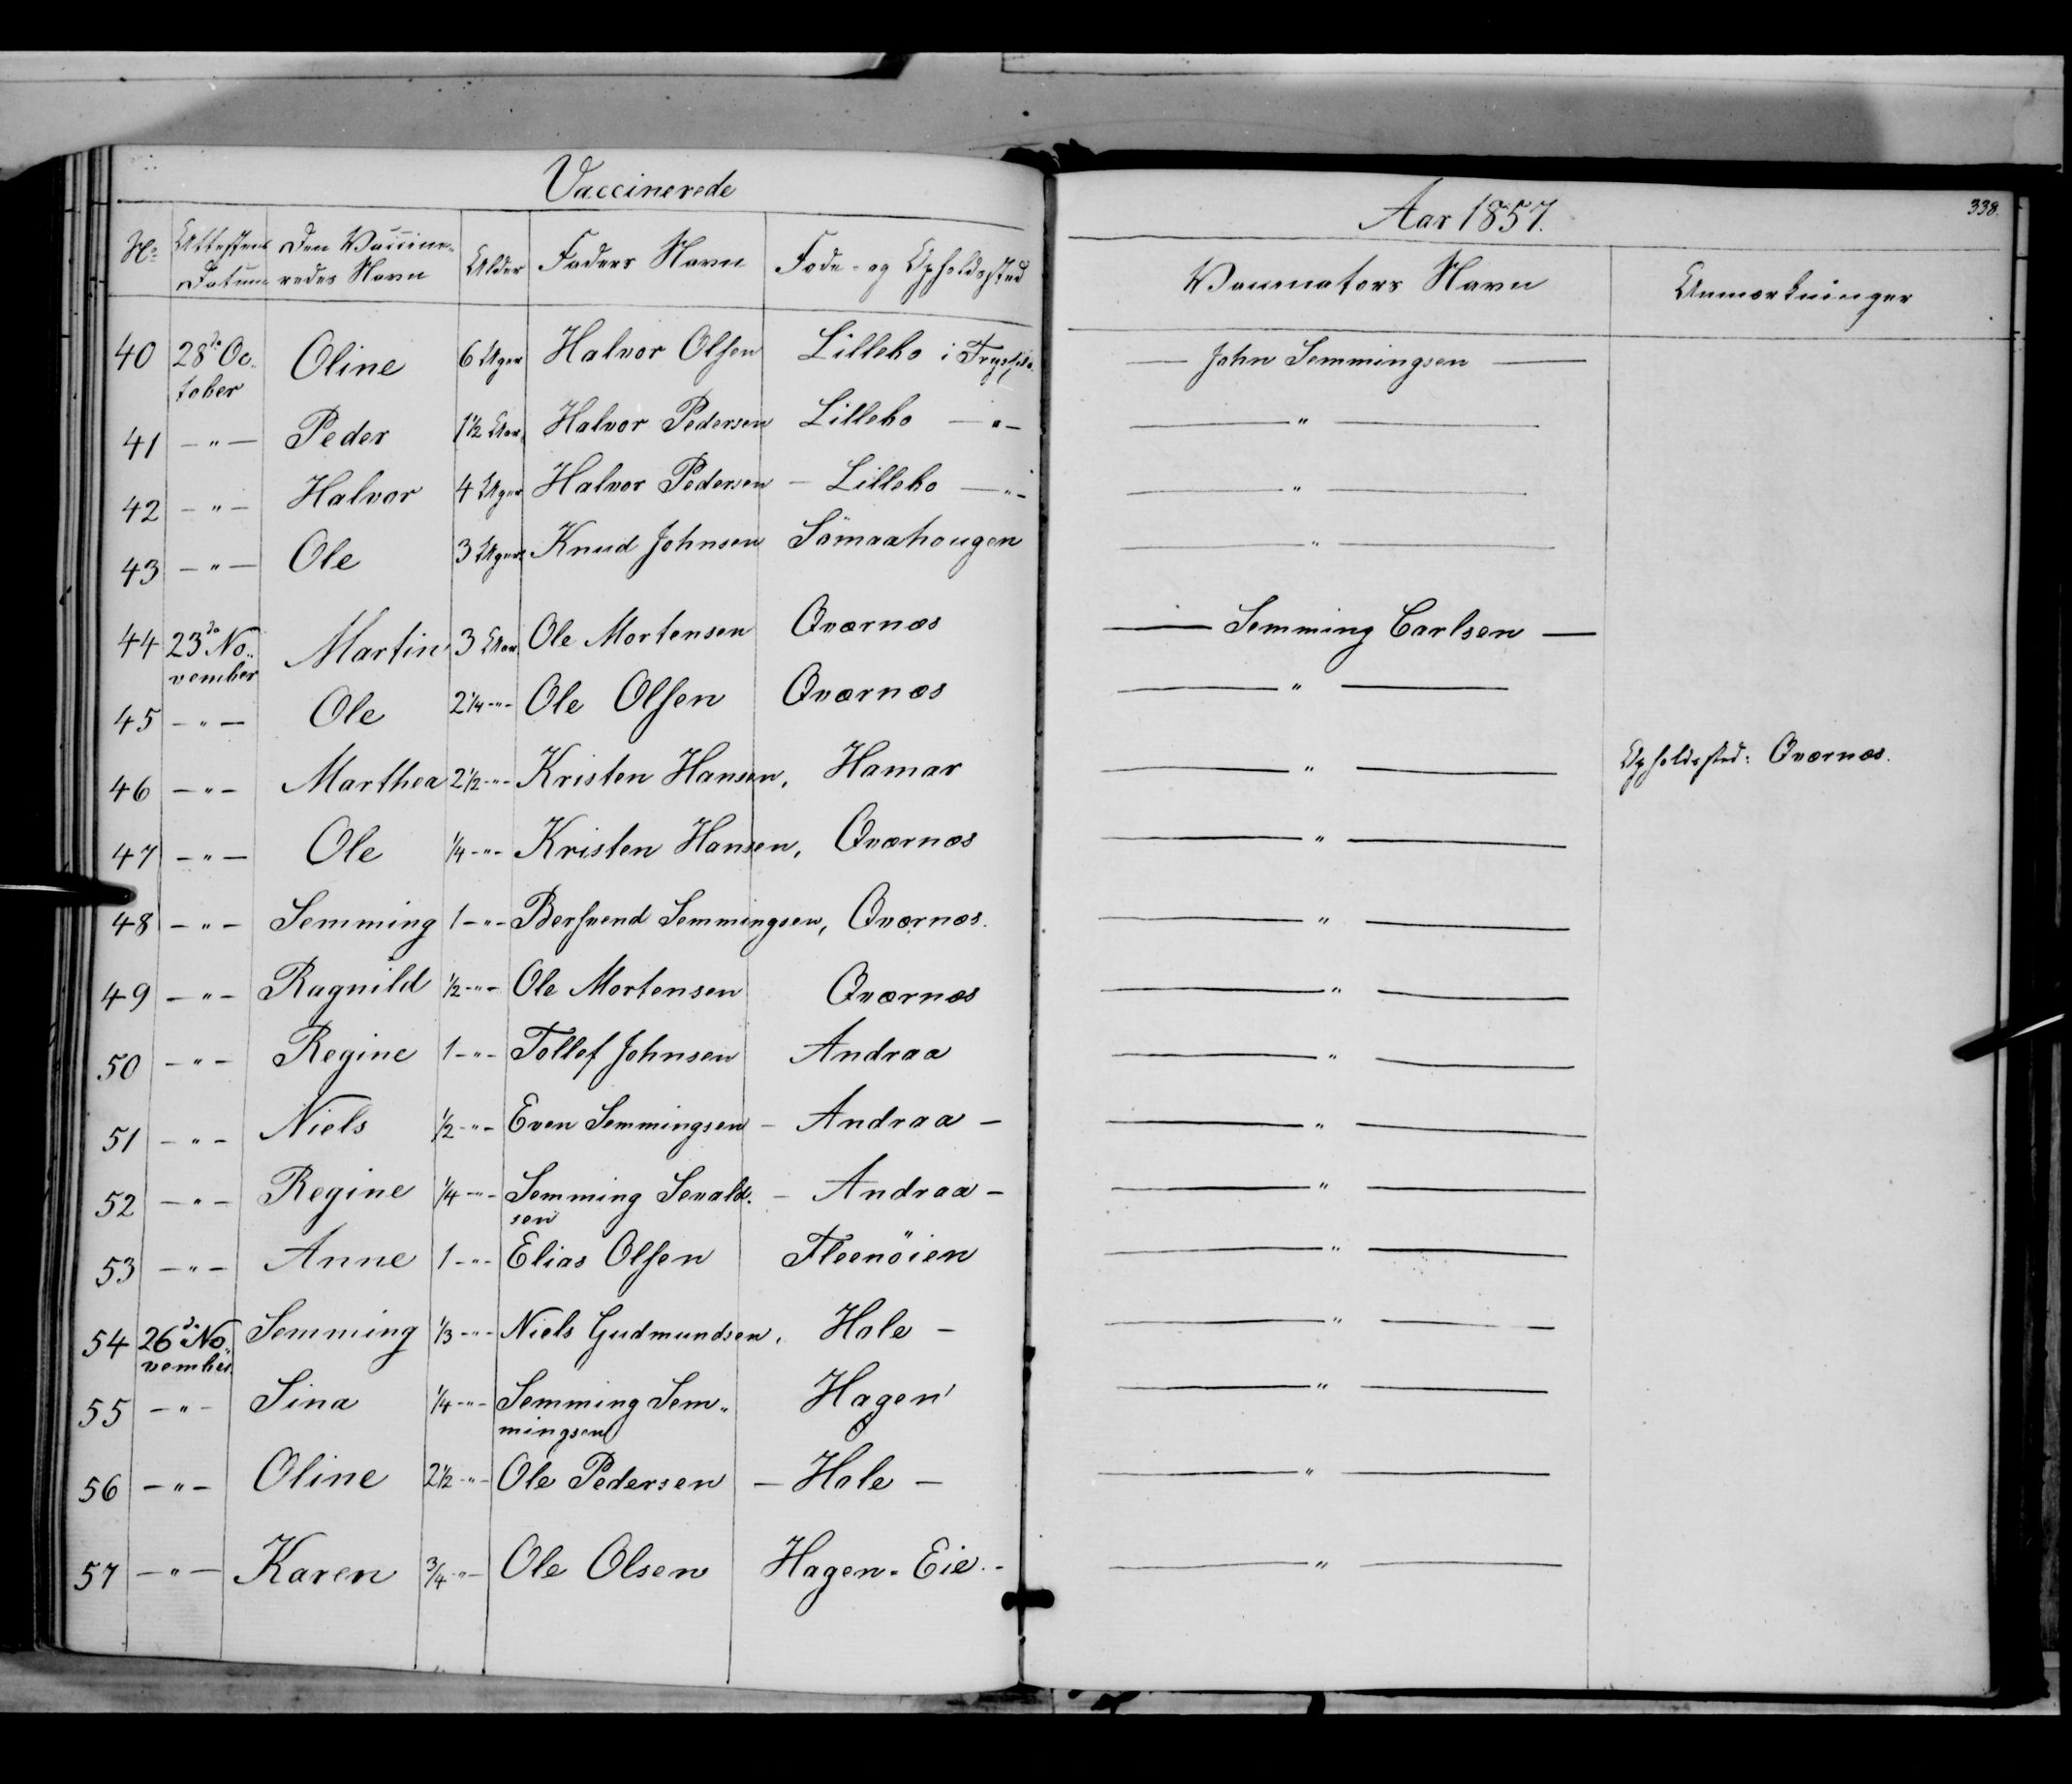 Vaccinerede
Aar 1857.
338.
No Attestens Datum Den Vaccineredes Navn Alder Faders Navn Føde- og Opholdssted Vaccinators Navn Anmærkninger
40 28de October Oline 6 Uger Halvor Olsen Lillebo i Trysild. — John Semmingsen —
41 — " — Peder 1 1/2 Aar Halvor Pedersen Lillebo — " — — " —
42 — " — Halvor 4 Uger Halvor Pedersen — Lillebo — " — — " —
43 — " — Ole 3 Uger Knud Johnsen Sömaahougen — " —
44 23de November Martin 3 Aar Ole Mortensen Qværnæs — Semming Carlsen —
45 — " — Ole 2 1/4 - " - Ole Olsen Qværnæs — " —
46 — " — Marthea 2 1/2 - " - Kristen Hansen, Hamar — " — Opholdssted: Qværnæs.
47 — " — Ole 1/4 - " - Kristen Hansen, Qværnæs — " —
48 — " — Semming 1 - " - Bersvend Semmingsen, Qværnæs. — " —
49 — " — Ragnild 1/2 - " - Ole Mortensen Qværnæs — " —
50 — " — Regine 1 - " - Tollef Johnsen Andraa — " —
51 — " — Niels 1/2 - " - Even Semmingsen — Andraa — — " —
52 — " — Regine 1/4 - " - Semming Sevaldsen — Andraa — — " —
53 — " — Anne 1 - " - Elias Olsen Fleenöien — " —
54 26de November Semming 1/3 - " - Niels Gudmundsen, Hole — — " —
55 — " — Sina 1/4 - " - Semming Semmingsen Hagen — " —
56 — " — Oline 2 1/2 - " - Ole Pedersen — Hole — — " —
57 — " — Karen 3/4 - " - Ole Olsen Hagen-Eie. — — " —